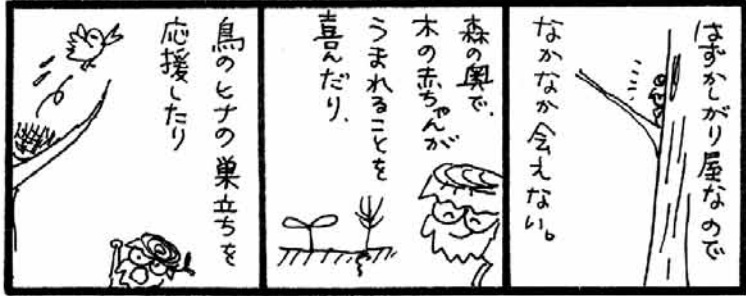 はずかしがり屋なので
なかなか会えない。
森の奥で、
木の赤ちゃんが
うまれることを
喜んだり、
鳥のヒナの巣立ちを
応援したり